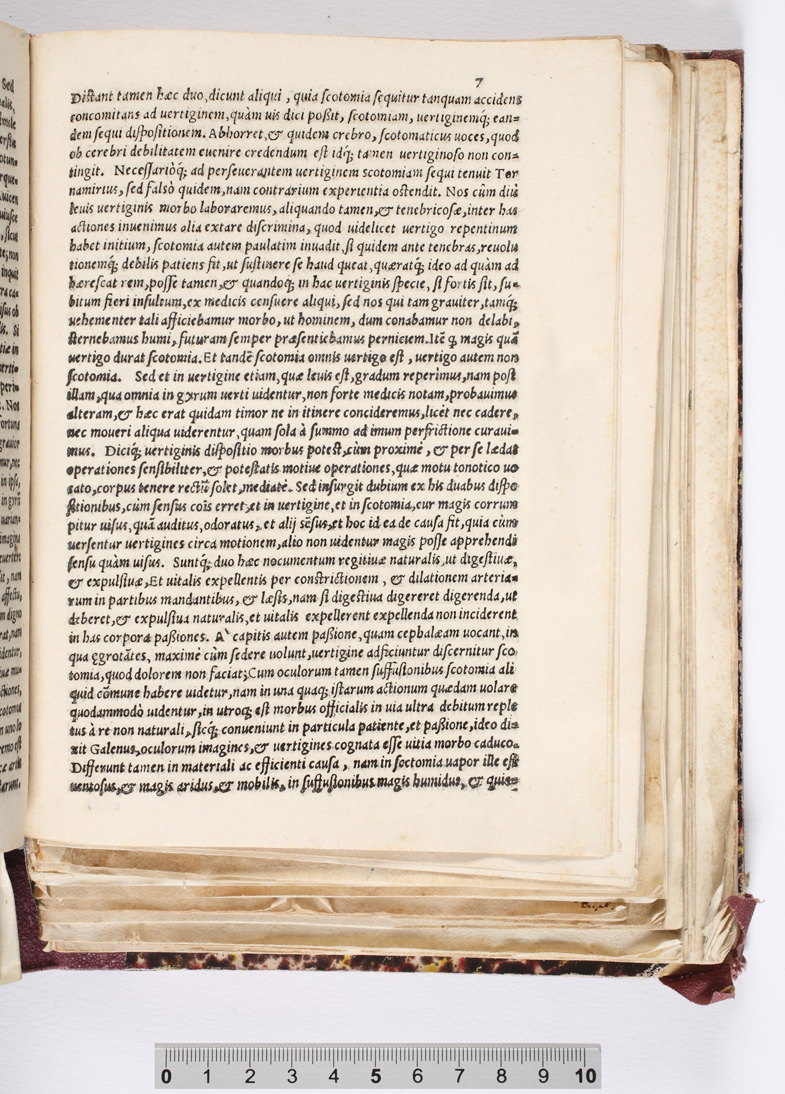 7
Distant tamen hæc duo, dicunt aliqui, quia scotomia sequitur tanquam accidens
concomitans ad uertiginem, quàm uis dici poßit, scotomiam, uertiginemq́; ean=
dem sequi dispositionem. Abhorret, & quidem crebro, scotomaticus uoces, quod
ob cerebri debilitatem euenire credendum est idq́; tamen uertiginoso non con=
tingit. Necessarioq́; ad perseuerantem uertiginem scotomiam sequi tenuit Tor
namirius, sed falsò quidem, nam contrarium experientia ostendit. Nos cûm diu
leuis uertiginis morbo laboraremus, aliquando tamen, & tenebricosæ, inter has
actiones inuenimus olia extare discrimina, quod uidelicet uertigo repentinum
habet initium, scotomia autem paulatim inuadit, si quidem ante tenebras, reuolu
tionemq́; debilis patiens fit, ut sustinere se haud queat, quæratq́; ideo ad quàm ad
hærescat rem, posse tamen, & quandoq́; in hac uertiginis specie, si fortis sit, su=
bitum fieri insultum, ex medicis censuere aliqui, sed nos qui tam grauiter, tamq́;
uehementer tali afficiebamur morbo, ut hominem, dum conabamur non delabi,
sternebamus humi, futuram semper præsentiebamus perniciem. Itẽ ꝙ magis quã
uertigo durat scotomia. Et tandẽ scotomia omnis uertigo est, uertigo autem non
scotomia. Sed et in uertigine etiam, quæ leuis est, gradum reperimus, nam post
illam, qua omnia in gyrum uerti uidentur, non forte medicis notam, probauimus
alteram, & hæc erat quidam timor ne in itinere concideremus, licet nec cadere,
nec moueri aliqua uiderentur, quam sola à summo ad imum perfrictione curaui=
mus. Diciq́; uertiginis dispositio morbus potest, cùm proximè, & per se lædat
operationes sensibiliter, & potestatis motiuæ operationes, quæ motu tonotico uo
cato, corpus tenere rectũ solet, mediatè. Sed insurgit dubium ex his duabus dispo
sitionibus, cùm sensus cõis erret, et in uertigine, et in scotomia, cur magis corrum
pitur uisus, quã auditus, odoratus, et alij sẽsus, et hoc id ea de causa fit, quia cùm
uersentur uertigines circa motionem, alio non uidentur magis posse apprehendi
sensu quàm uisus. Suntq́; duo hæc nocumentum regitiuæ naturalis, ut digestiuæ,
& expulsiuæ, Et uitalis expellentis per constrictionem, & dilationem arteria=
rum in partibus mandantibus, & læsis, nam si digestiua digereret digerenda, ut
deberet, & expulsiua naturalis, et uitalis expellerent expellenda non inciderent
in has corpora paßiones. A' capitis autem paßione, quam cephalæam uocant, in
qua ęgrotãtes, maximè cùm sedere uolunt, uertigine adficiuntur discernitur sco
tomia, quod dolorem non faciat; Cum oculorum tamen suffusionibus scotomia ali
quid cõmune habere uidetur, nam in una quaq; istarum actionum quædam uolare
quodammodò uidentur, in utroq; est morbus officialis in uia ultra debitum reple
tus à re non naturali, sicq́; conueniunt in particula patiente, et paßione, ideo di=
xit Galenus, oculorum imagines, & uertigines cognata esse uitia morbo caduco.
Differunt tamen in materiali ac efficienti causa, nam in soctomia uapor ille est
uentosus, & magis aridus, & mobilis, in suffusionibus magis humidus, & quie=
0 1 2 3 4 5 6 7 8 9 10